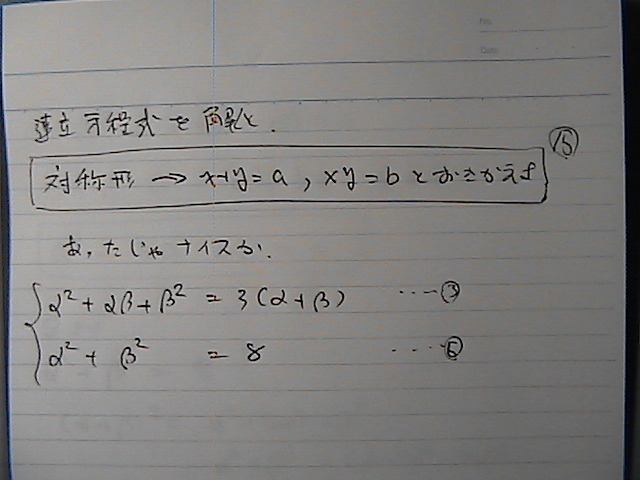 No.
Date
連立方程式を解く.
⑮
対称形 → x+y=a, xy=b とおきかえす
あったじゃナイスか.
α² + αβ + β² = 3(α+β) ……③
α² + β² = 8 ……